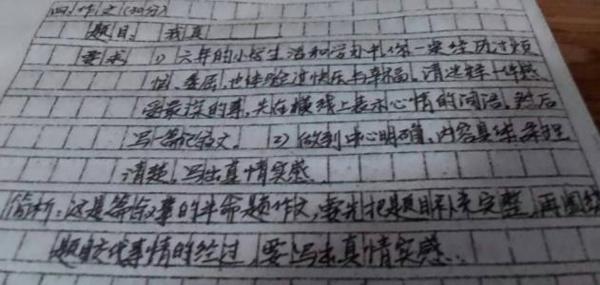 四、作文(30分)
题目：我真
要求 1) 六年的小学生活和学习礼你一定经历过烦
恼、委屈,也体验过快乐与幸福。请选择一件感
受最深的事,先在横线上表示心情的词语,然后
写一篇记叙文。 2) 做到中心明确,内容具体,条理
清楚,写出真情实感
简析：这是篇叙事的半命题作文,要先把题目补充完整,再围绕
题目交代事情的经过,要写出真情实感.